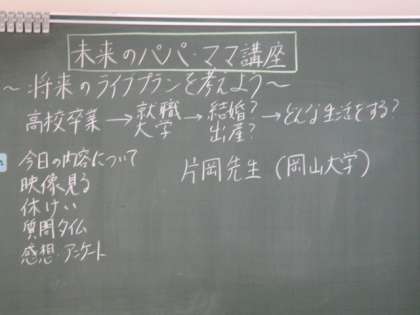 未来のパパ・ママ講座
～将来のライフプランを考えよう～
高校卒業→就職 大学→結婚? 出産?→どんな生活をする?
今日の内容について
映像見る
休けい
質問タイム
感想・アンケート
片岡先生(岡山大学)